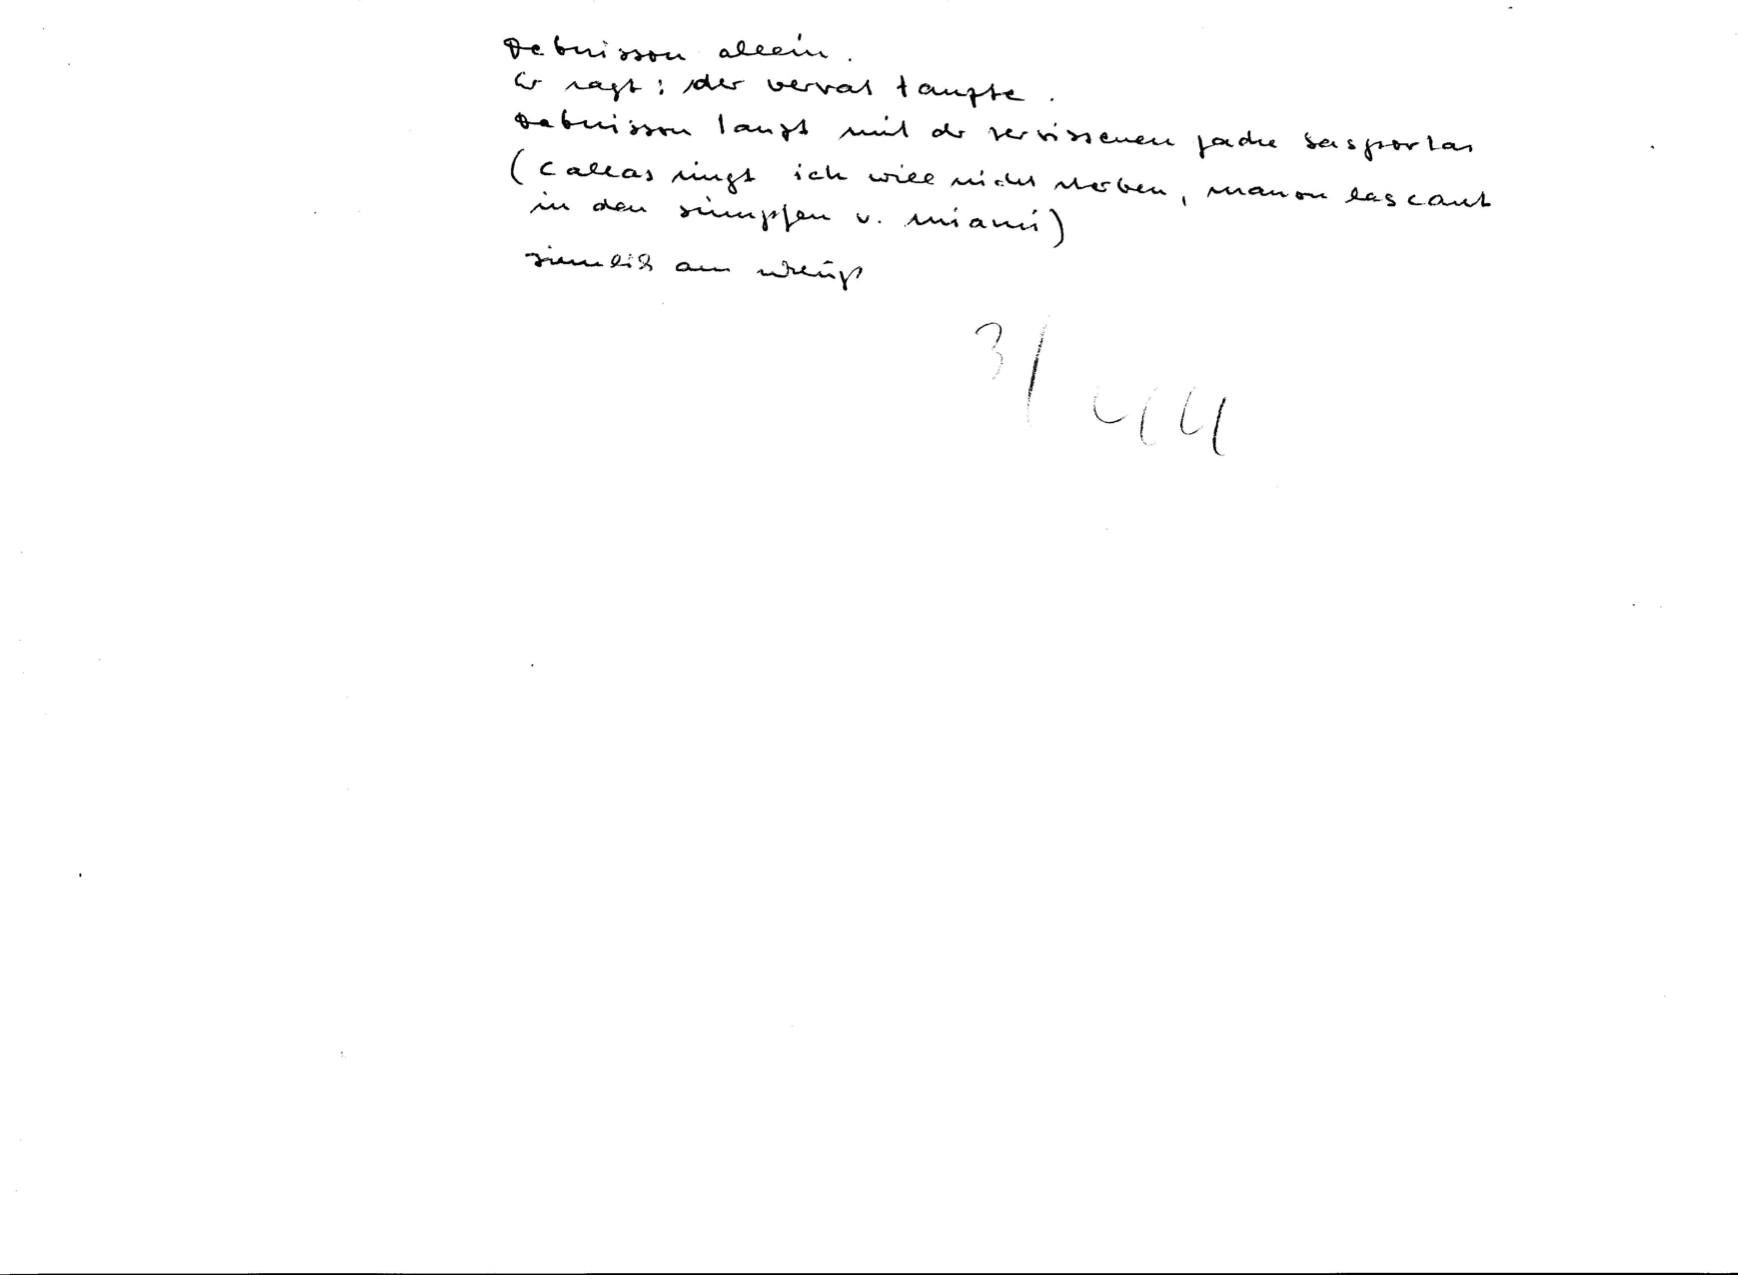 Debuisson allein.
Er sagt: der verrat tanzte.
Debuisson tanzt mit der zerrissenen jacke Sasportas
(Callas singt ich will nicht sterben, manon lescaut
in den sümpfen v. miami)
ziemlich am
3/44